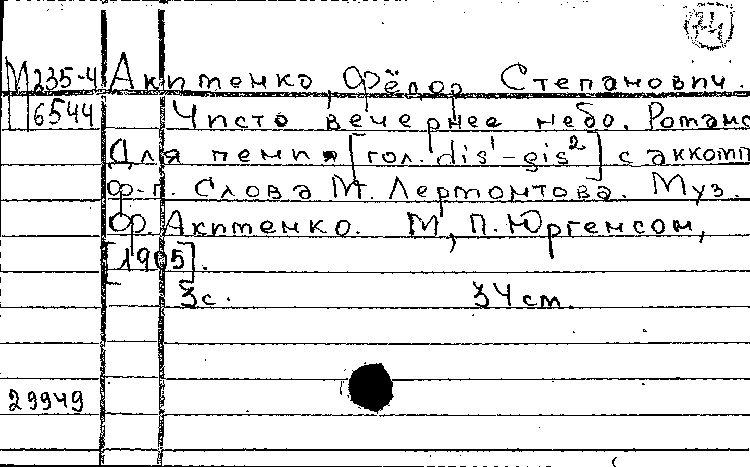 М235-4 Акименко, Фёдор Степанович.
6544 Чисто вечернее небо. Романс
Для пения [гол. dis¹-gis²] с аккомп.
ф-п. Слова М. Лермонтова. Муз.
Ф. Акименко. М., П. Юргенсон,
[1905].
3с. 34 cm.
29949